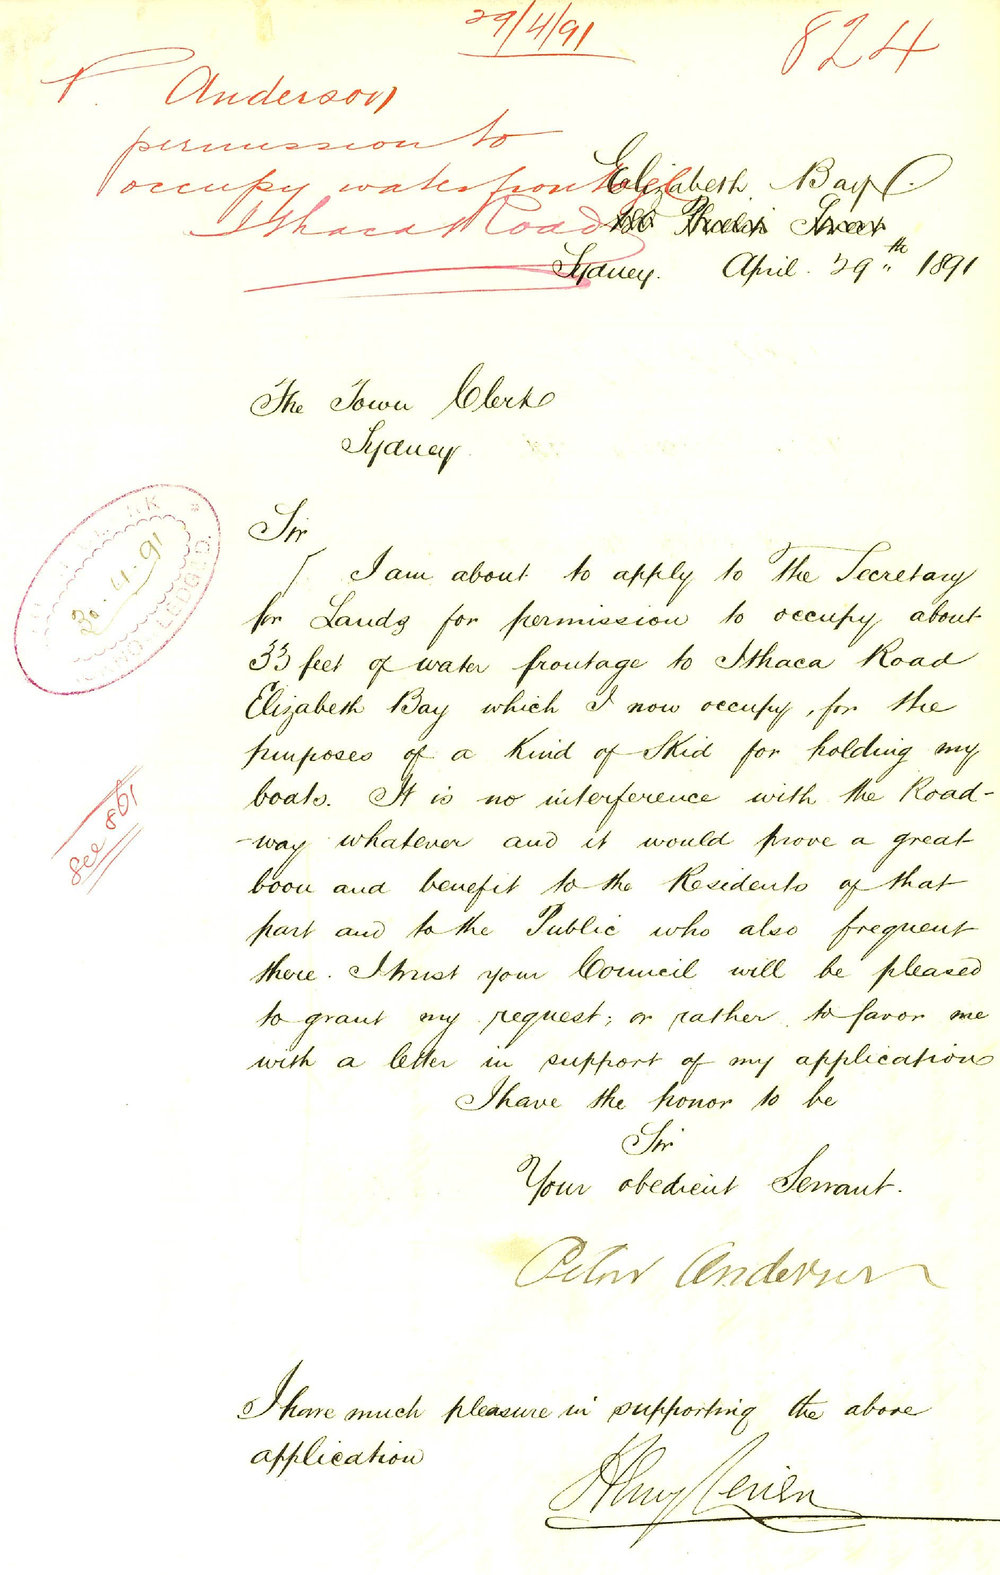 29/4/91
824
P. Anderson
permission to
occupy water frontage
Ithaca Road
Elizabeth Bay
Street
Sydney. April. 29th 1891
The Town Clerk
Sydney
30.4.91
ACKNOWLEDGED
Sir
I am about to apply to The Secretary
for Lands for permission to occupy about
33 feet of water frontage to Ithaca Road
Elizabeth Bay which I now occupy, for the
purposes of a Kind of Skid for holding my
boats. It is no interference with the Road-
-way whatever and it would prove a great
boon and benefit to the Residents of that
part and to the Public who also frequent
there. I trust your Council will be pleased
to grant my request; or rather to favor me
with a letter in support of my application
See 861
I have the honor to be
Sir
Your obedient Servant.
Peter Anderson
I have much pleasure in supporting the above
application